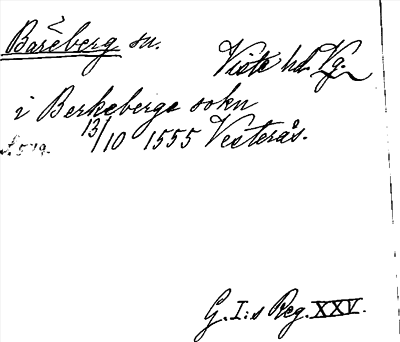 Bareberg sn.
Viste hd. Vg.
i Berkeberga sokn
13/10 1555 Vesterås.
s. 579.
G. I:s Reg. XXV.